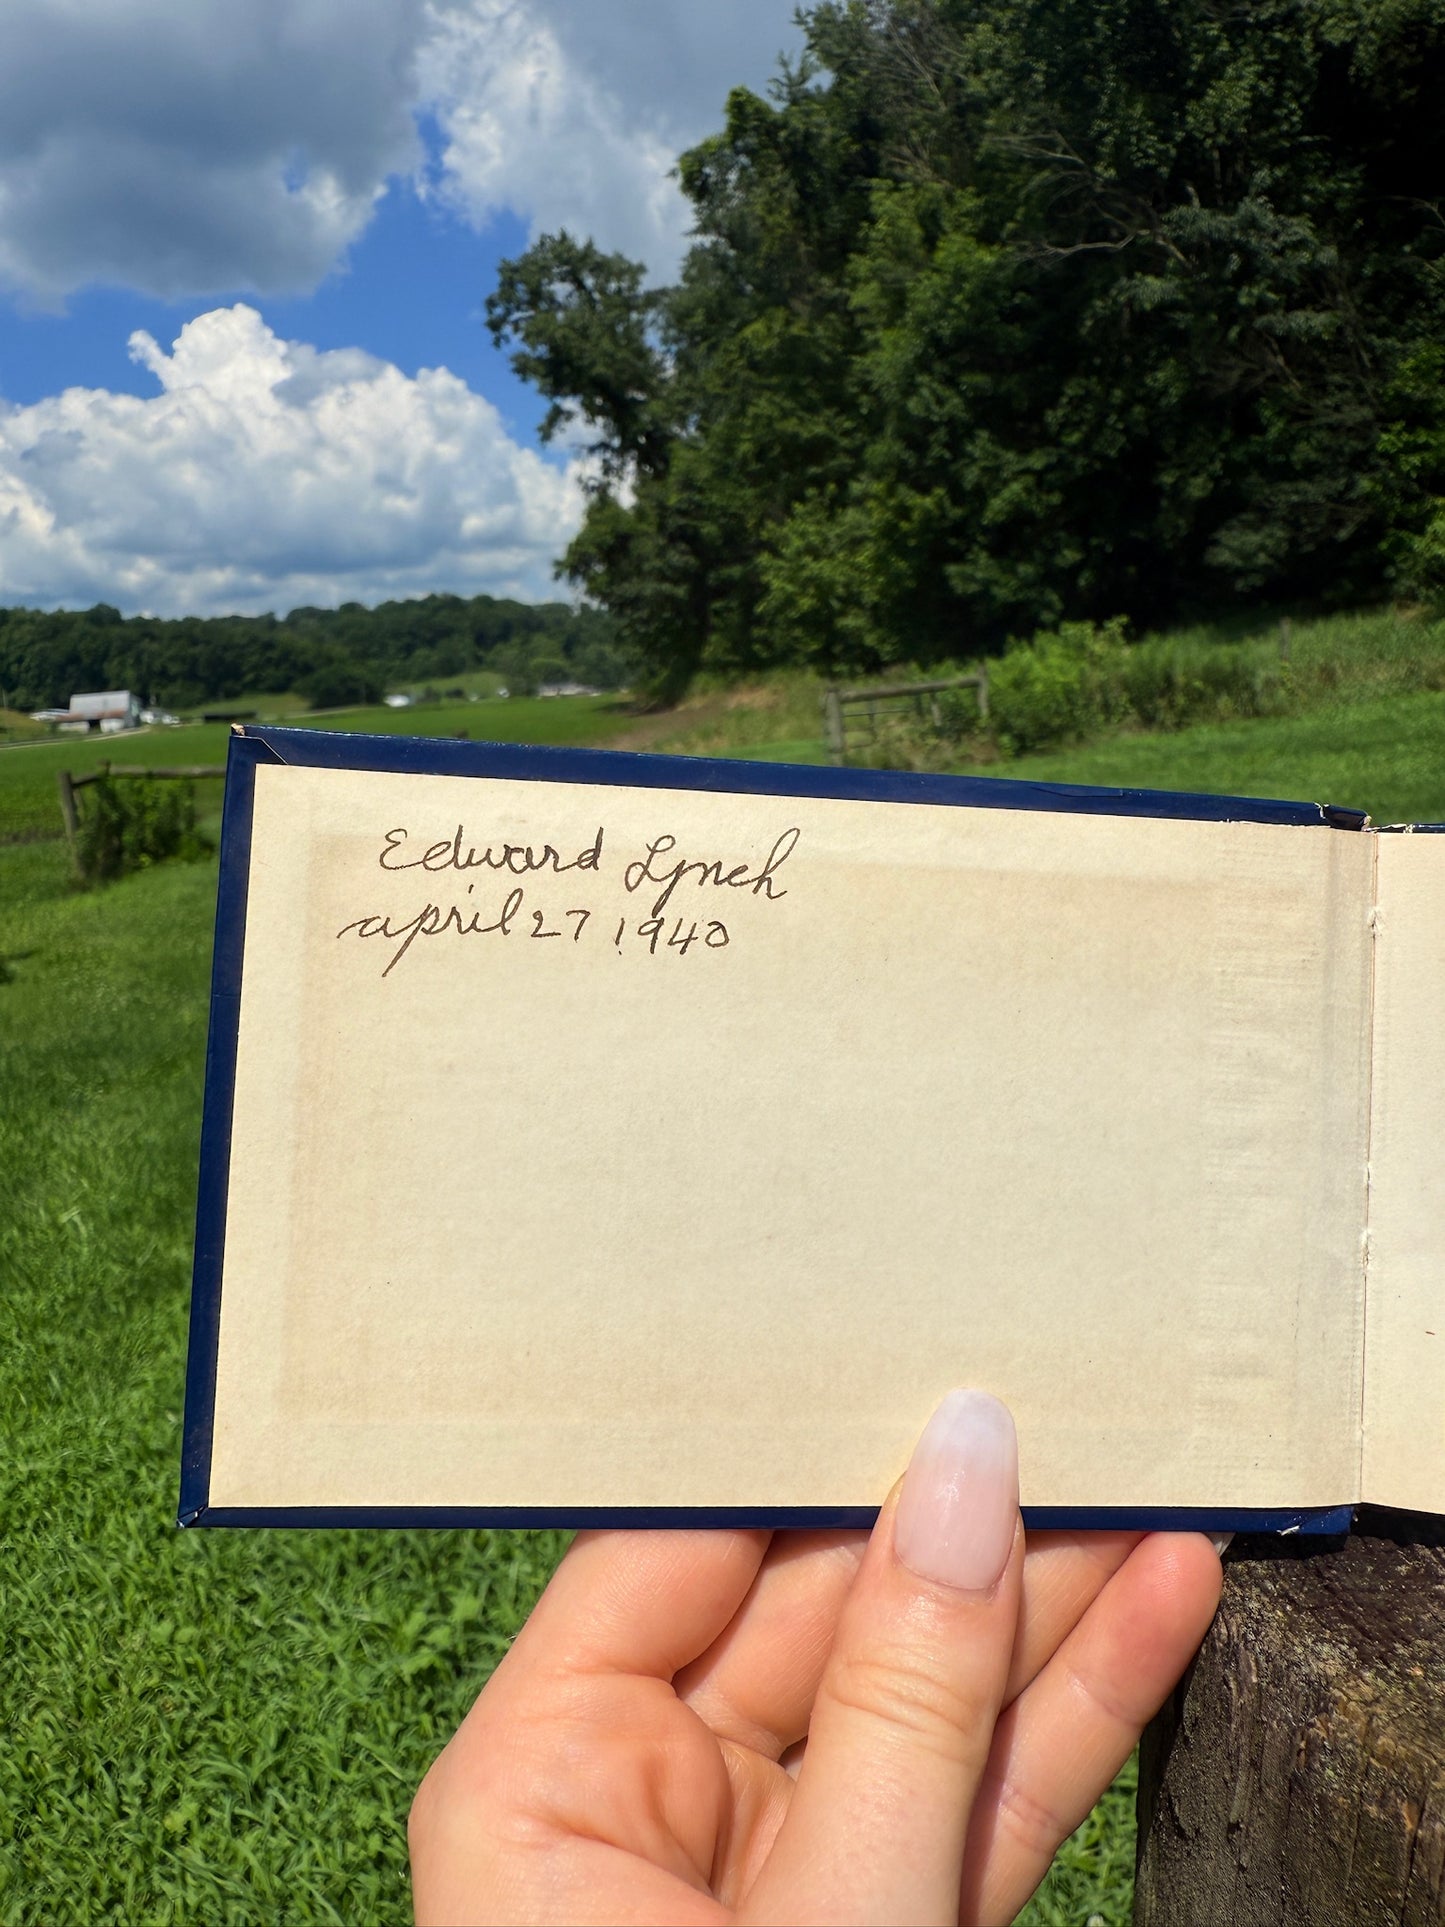 Edward Lynch
april 27 1940